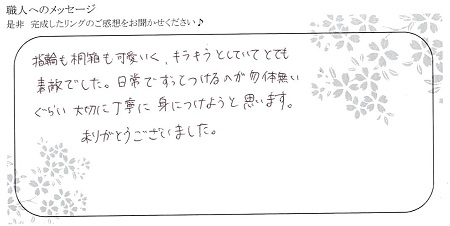 職人へのメッセージ
是非 完成したリングのご感想をお聞かせください♪
指輪も桐箱も可愛いく、キラキラとしていてとても
素敵でした。日常でずっとつけるのが勿体無い
ぐらい 大切に丁寧に 身につけようと思います。
ありがとうございました。